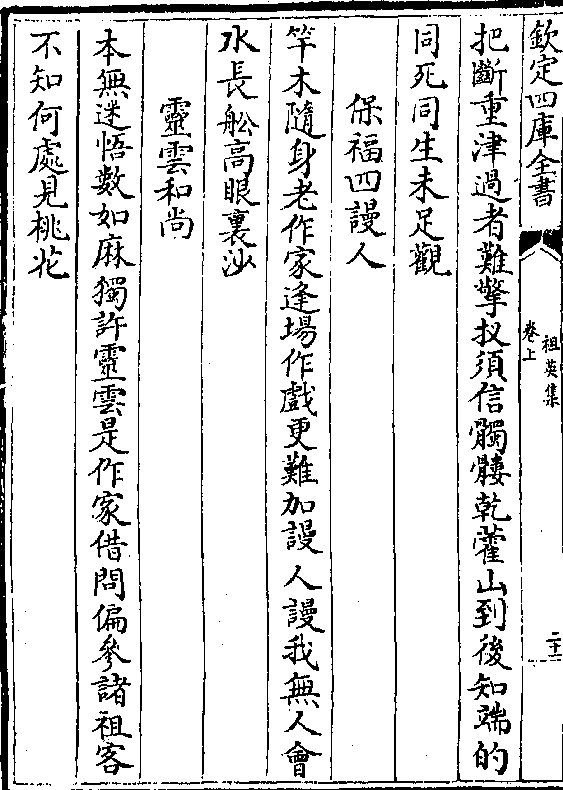 欽定四庫全書
祖英集
卷上
二十一
把斷重津過者難擎扠須信髑髏乾藿山到後知端的
同死同生未足觀
保福四謾人
竿木隨身老作家逢場作戲更難加謾人謾我無人會
水長船高眼裏沙
靈雲和尚
本無迷悟數如麻獨許靈雲是作家借問偏參諸祖客
不知何處見桃花